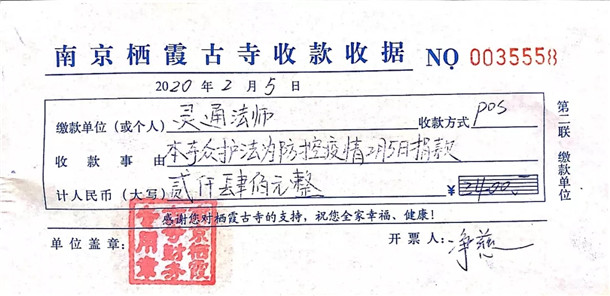 南京栖霞古寺收款收据 NO 0035558
2020年2月5日
缴款单位（或个人）灵通法师 收款方式 pos
收款事由 本寺众护法为防控疫情2月5日捐款
计人民币（大写）贰仟肆佰元整 ¥2400.00
感谢您对栖霞古寺的支持，祝您全家幸福、健康！
单位盖章： 开票人：净慈
第二联 缴款单位